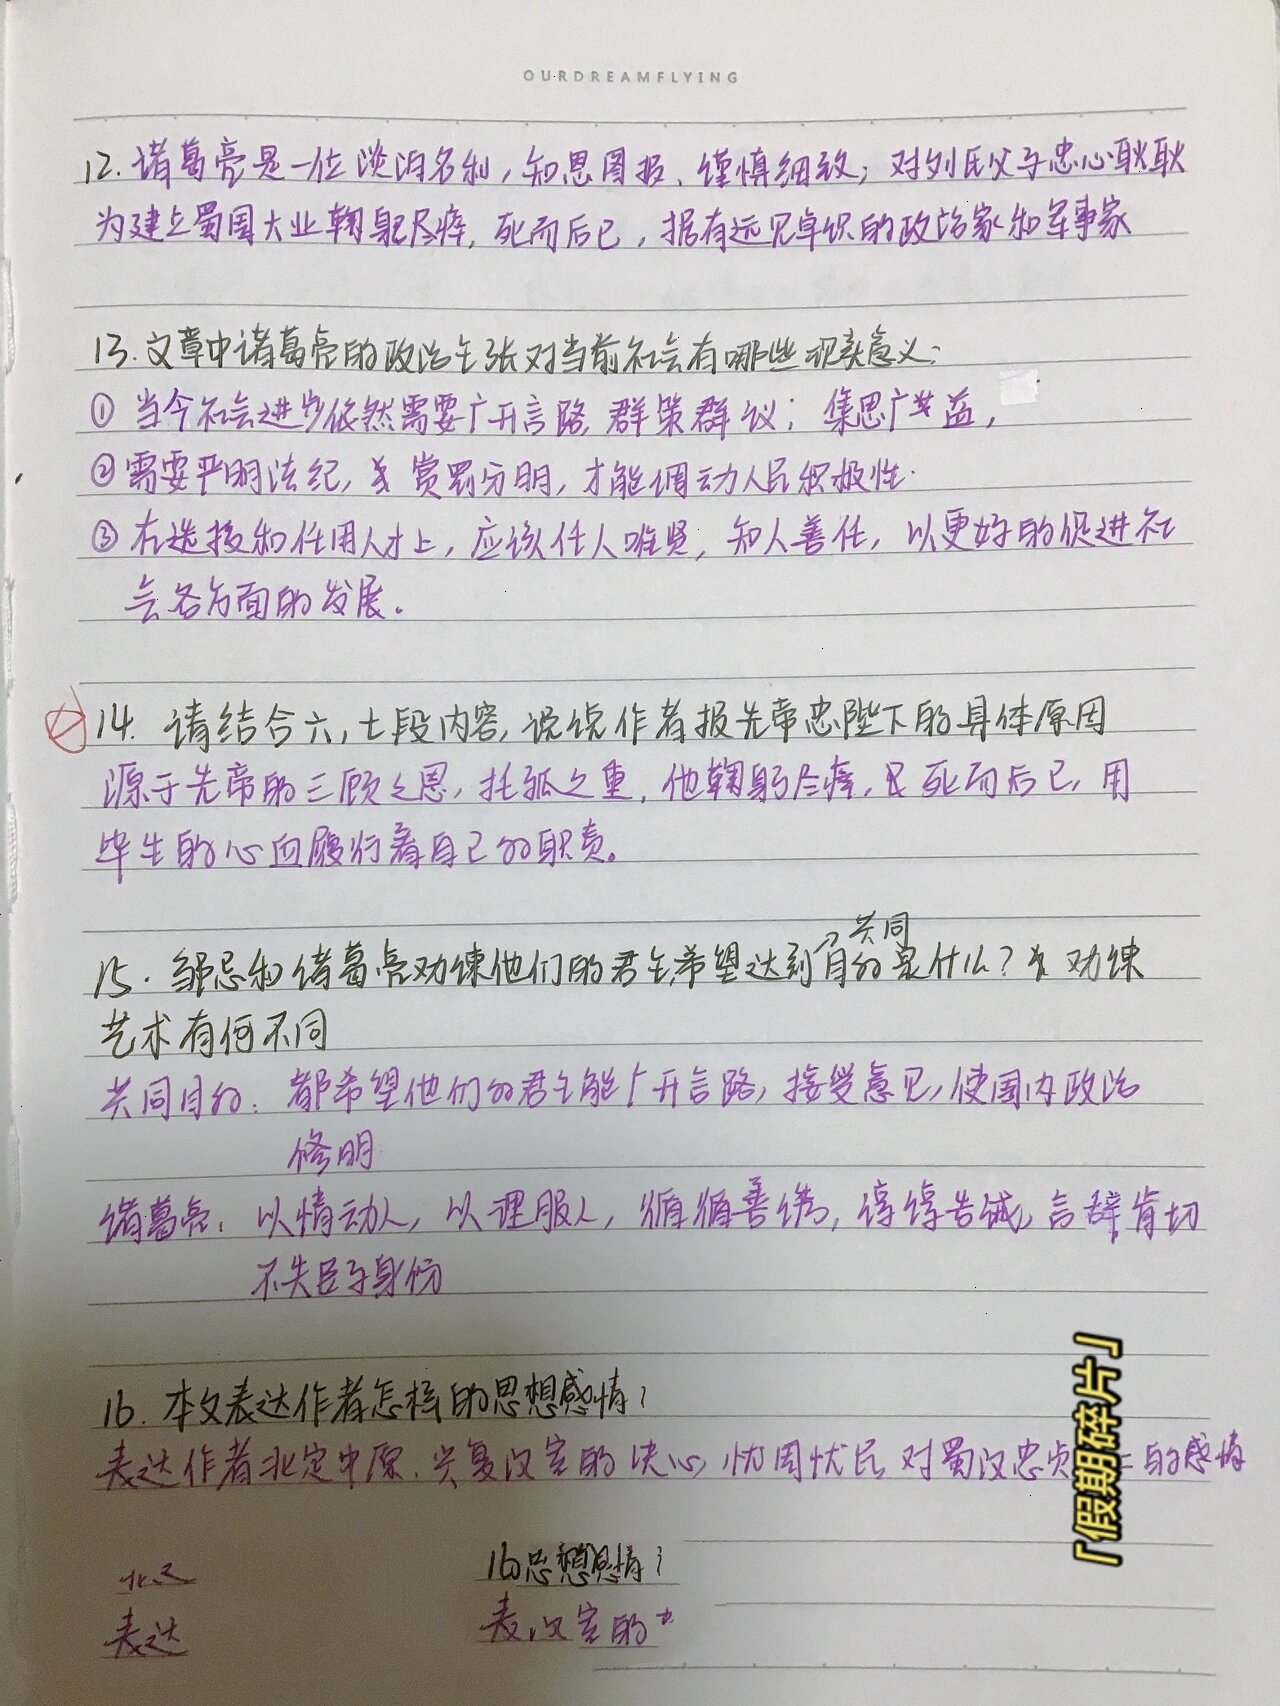 OURDREAMFLYING
12.诸葛亮是一位淡泊名利,知恩图报、谨慎细致;对刘氏父子忠心耿耿
为建立蜀国大业鞠躬尽瘁,死而后已,据有远见卓识的政治家和军事家
13.文章中诸葛亮的政治主张对当前社会有哪些现实意义:
①当今社会进步依然需要广开言路,群策群议;集思广益,
②需要严明法纪,赏罚分明,才能调动人民积极性.
③在选拔和任用人才上,应该任人唯贤,知人善任,以更好的促进社
会各方面的发展。
14.请结合六,七段内容,说说作者报先帝忠陛下的具体原因
源于先帝的三顾之恩,托孤之重,他鞠躬尽瘁,死而后已,用
毕生的心血履行着自己的职责。
共同
15.邹忌和诸葛亮劝谏他们的君主希望达到目的是什么?劝谏
艺术有何不同
共同目的:都希望他们的君主能广开言路,接受意见,使国内政治
修明
诸葛亮:以情动人,以理服人,循循善诱,谆谆告诫,言辞肯切
不失臣子身份
16.本文表达作者怎样的思想感情?
表达作者北定中原.兴复汉室的决心,忧国忧民 对蜀汉忠贞 的感情
16思想感情?
表达
表 汉室的
「假期碎片」